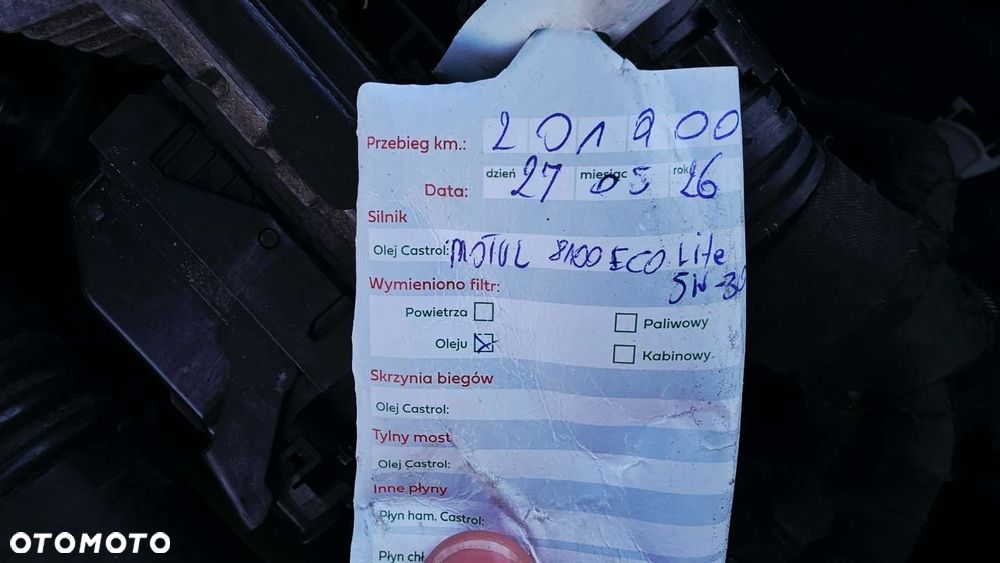 Przebieg km.: 201900
dzień miesiąc rok
Data: 27 05 26
Silnik
Olej Castrol: MOTUL 8100 ECO Lite
5W-30
Wymieniono filtr:
Powietrza Paliwowy
Oleju Kabinowy
Skrzynia biegów
Olej Castrol:
Tylny most
Olej Castrol:
Inne płyny
Płyn ham. Castrol:
Płyn chł
OTOMOTO